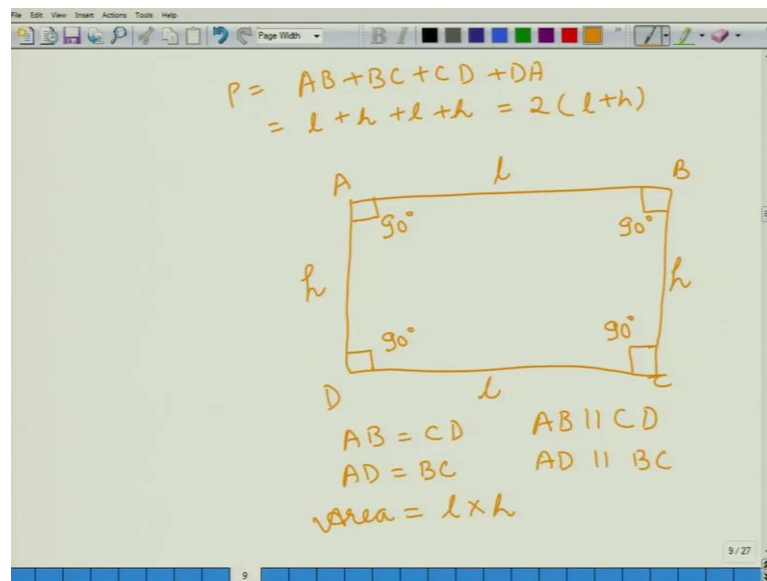 File Edit View Insert Actions Tools Help
Page Width B I
P = AB+BC+CD+DA
= l+h+l+h = 2(l+h)
A l B
90° 90°
h h
90° 90°
D l C
AB = CD AB || CD
AD = BC AD || BC
Area = l×h
9/27
9